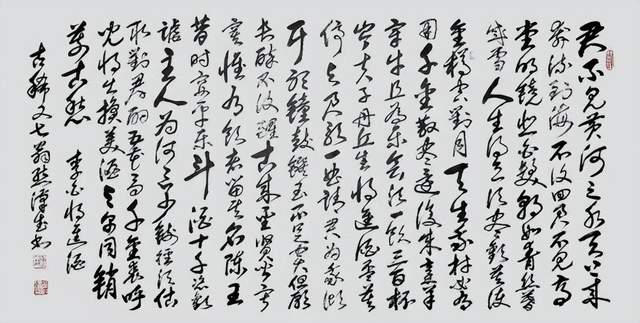 君不见黄河之水天上来
奔流到海不复回君不见高
堂明镜悲白发朝如青丝暮
成雪人生得意须尽欢莫使
金樽空对月天生我材必有
用千金散尽还复来烹羊
宰牛且为乐会须一饮三百杯
岑夫子丹丘生将进酒杯莫
停与君歌一曲请君为我倾
耳听钟鼓馔玉不足贵但愿
长醉不复醒古来圣贤皆寂
寞惟有饮者留其名陈王
昔时宴平乐斗酒十千恣欢
谑主人为何言少钱径须沽
取对君酌五花马千金裘呼
儿将出换美酒与尔同销
万古愁 李白将进酒
古稀又七翁